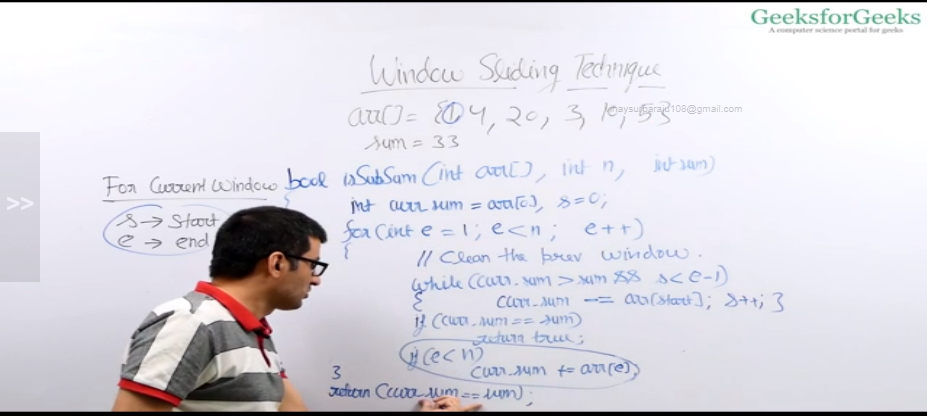 GeeksforGeeks
A computer science portal for geeks
Window Sliding Technique
arr[] = {1, 4, 20, 3, 10, 5}
sum = 33
>>
For Current Window
s → start
e → end
bool isSubSum(int arr[], int n, int sum)
{
int curr_sum = arr[0], s=0;
for(int e = 1; e<n; e++)
{
// Clean the prev window.
while(curr_sum > sum && s<e-1)
{ curr_sum -= arr[start]; s++; }
if (curr_sum == sum)
return true;
if(e<n)
curr_sum += arr(e);
}
return (curr_sum == sum);